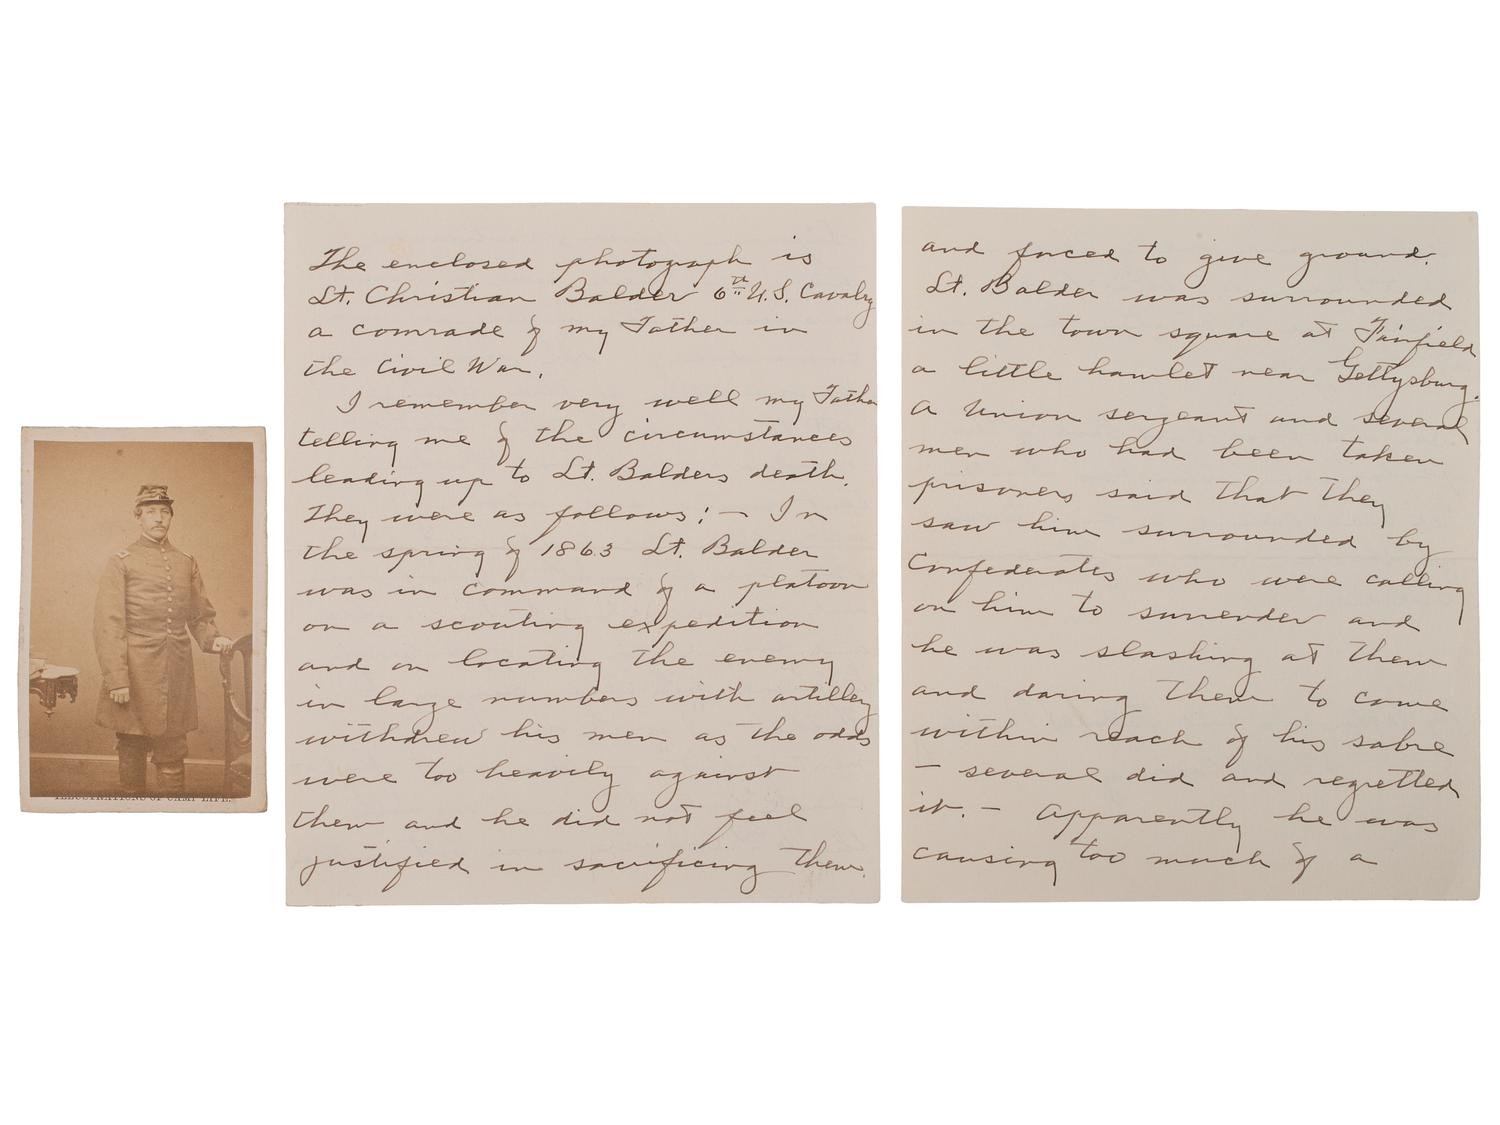 ILLUSTRATIONS OF CAMP LIFE.
The enclosed photograph is
Lt. Christian Balder 6th U.S. Cavalry
a comrade of my Father in
the Civil War.
I remember very well my Father
telling me of the circumstances
leading up to Lt. Balders death.
They were as follows: — In
the spring of 1863 Lt. Balder
was in command of a platoon
on a scouting expedition
and on locating the enemy
in large numbers with artillery
withdrew his men as the odds
were too heavily against
them and he did not feel
justified in sacrificing them.
and forced to give ground.
Lt. Balder was surrounded
in the town square at Fairfield
a little hamlet near Gettysburg.
A Union sergeant and several
men who had been taken
prisoners said that they
saw him surrounded by
Confederates who were calling
on him to surrender and
he was slashing at them
and daring them to come
within reach of his sabre
— several did and regretted
it. — Apparently he was
causing too much of a